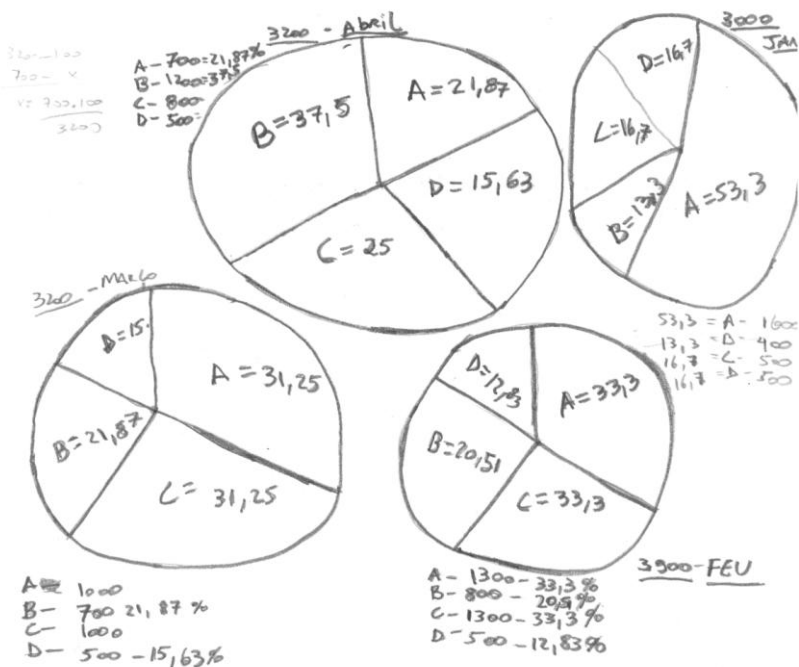 3200 - Abril
3200-100
700- x
x= 700.100
3200
A-700=21,87%
B-1200=37,5
C- 800-
D- 500=
A=21,87
B=37,5
D=15,63
C=25
3000
JAN
D=16,7
C=16,7
B=13,3
A=53,3
53,3 = A- 1600
13,3 = B- 400
16,7 = C- 500
16,7 = D- 500
3200 - MARÇO
D=15
A=31,25
B=21,87
C= 31,25
A 1000
B- 700 21,87%
C- 1000
D- 500 -15,63%
D=12,83
A=33,3
B=20,51
C=33,3
3900-FEV
A- 1300-33,3%
B- 800- 20,51%
C-1300-33,3%
D-500-12,83%